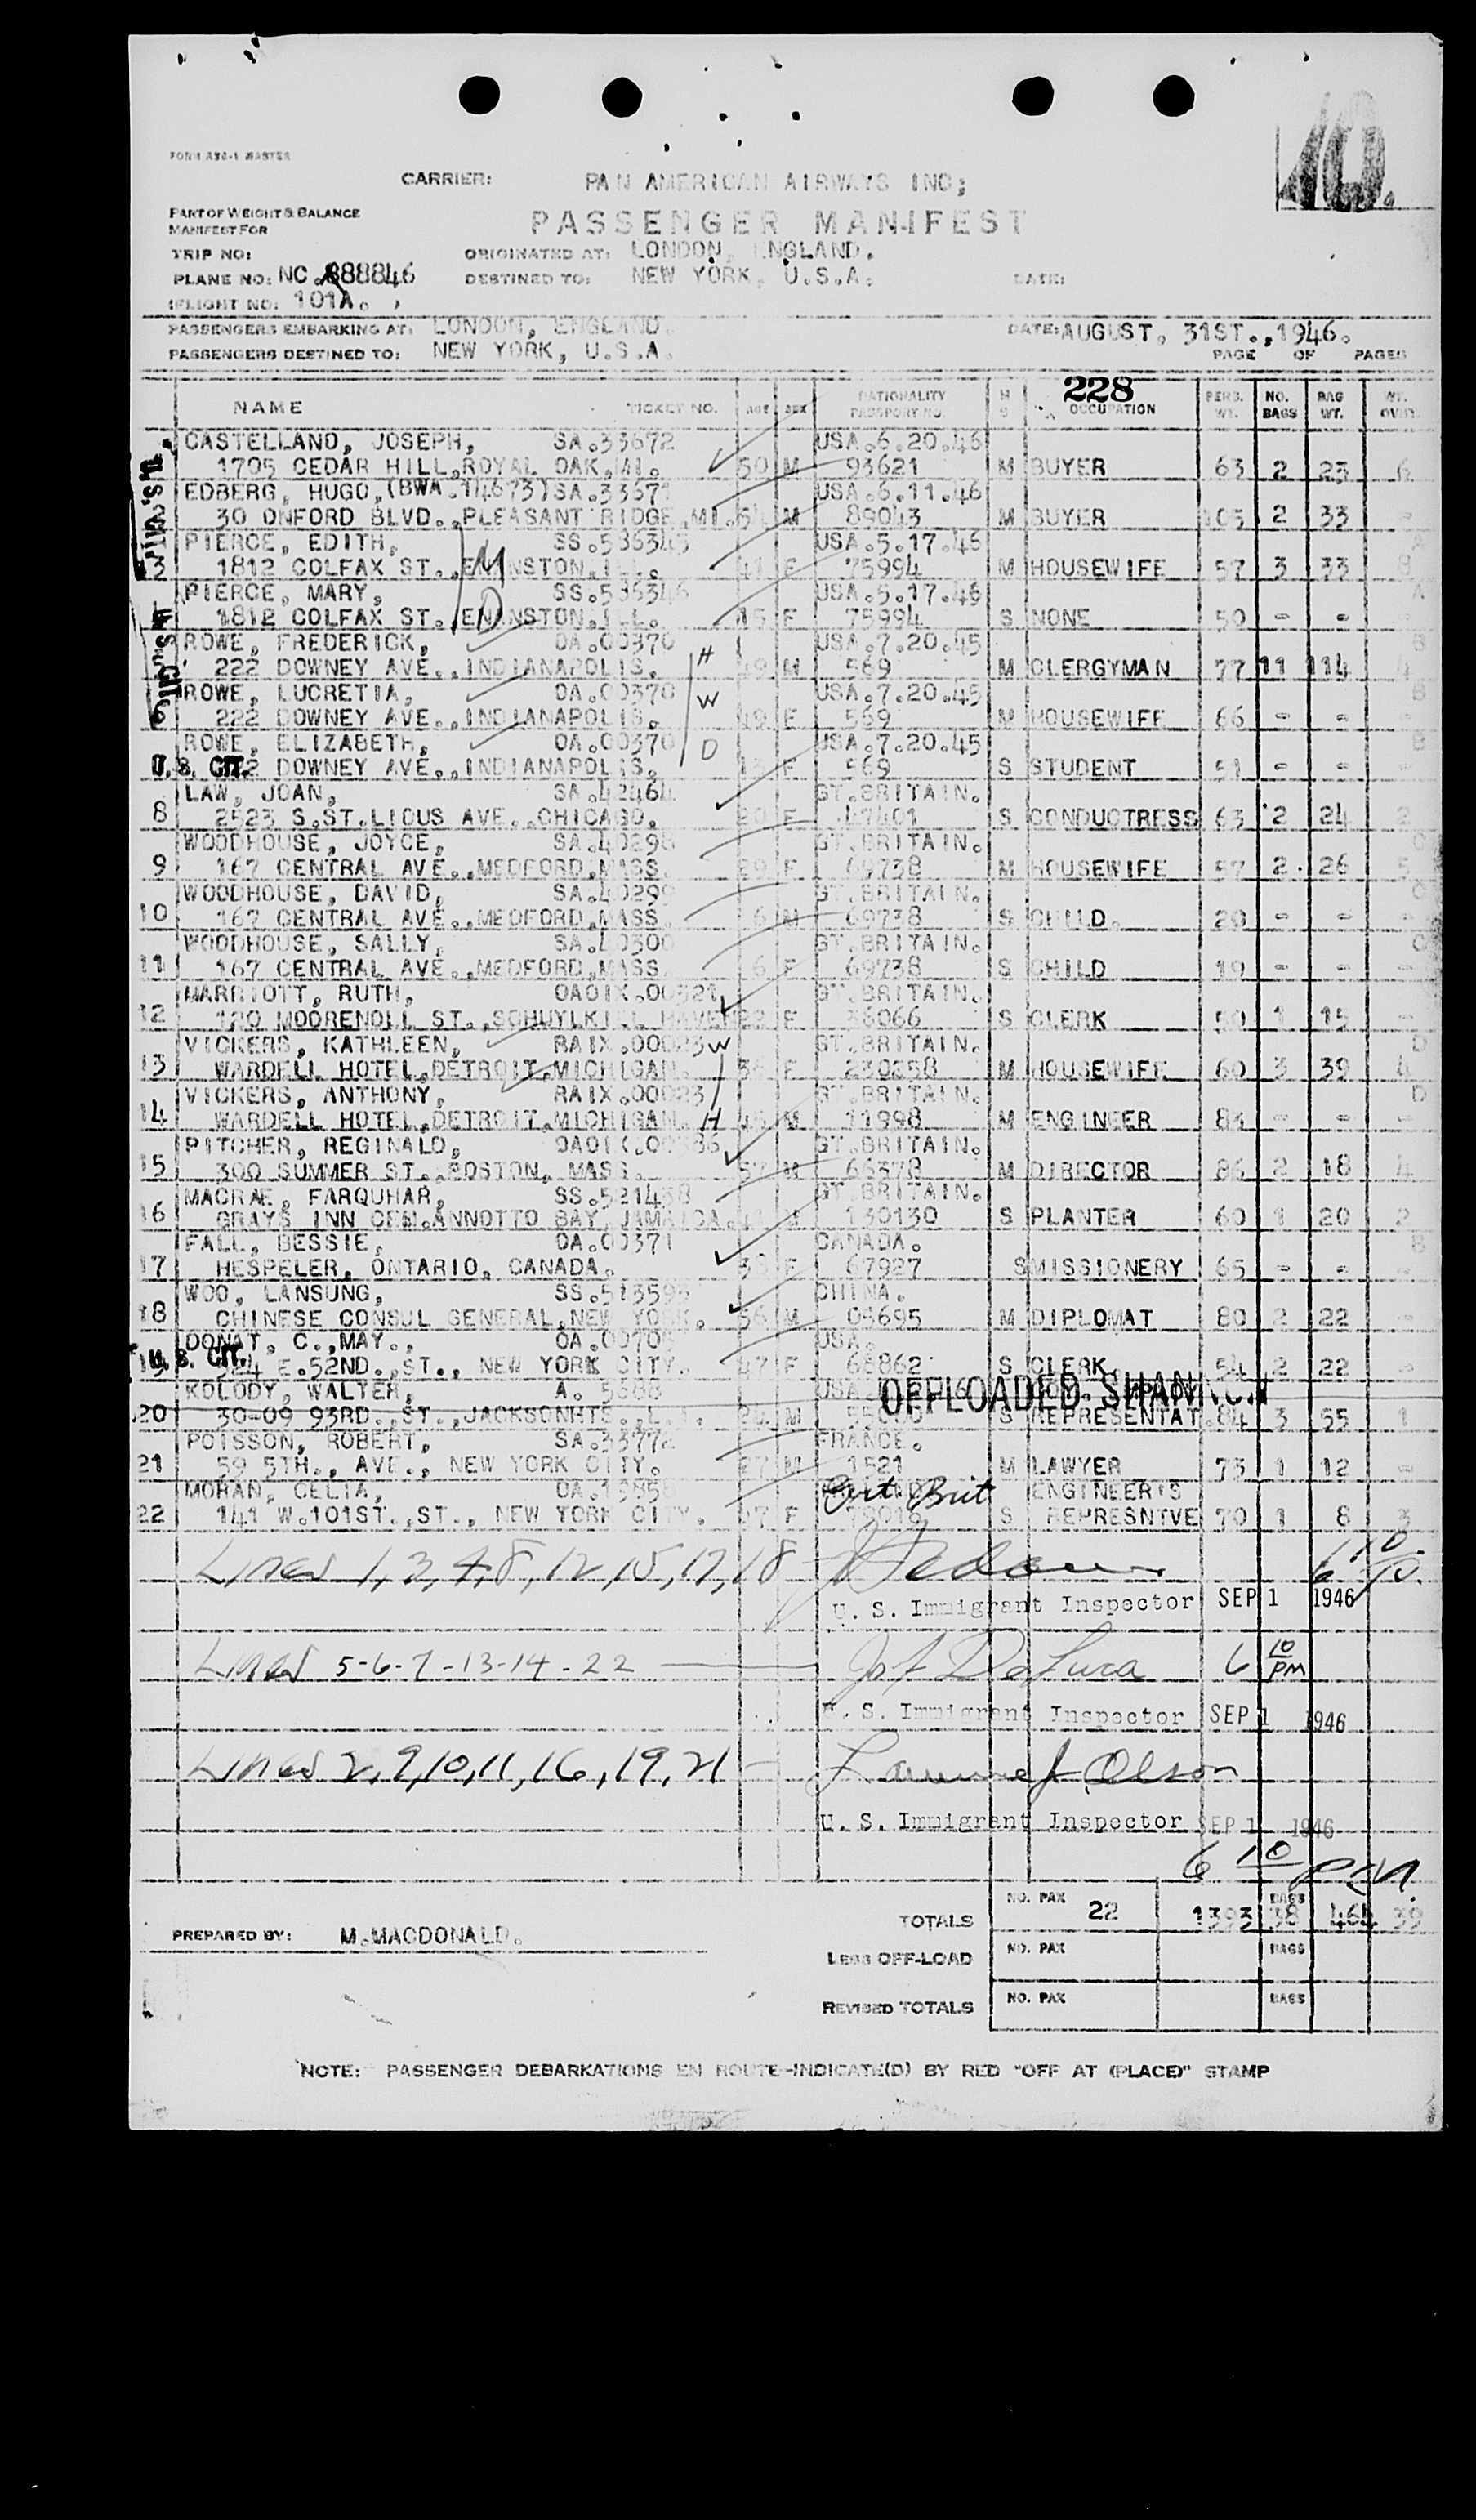 10.
FORM A80-1 MASTER
CARRIER: PAN AMERICAN AIRWAYS INC;
PART OF WEIGHT & BALANCE
MANIFEST FOR
PASSENGER MANIFEST
TRIP NO: ORIGINATED AT: LONDON, ENGLAND.
PLANE NO: NC.88846 DESTINED TO: NEW YORK, U.S.A. DATE:
FLIGHT NO: 101A.
PASSENGERS EMBARKING AT: LONDON, ENGLAND. DATE: AUGUST, 31ST.,1946.
PASSENGERS DESTINED TO: NEW YORK, U.S.A. PAGE OF PAGES
228
NAME TICKET NO. AGE SEX NATIONALITY PASSPORT NO. M S OCCUPATION PERS. WT. NO. BAGS BAG WT. WT. OVER.
CASTELLAND, JOSEPH, SA.33672 USA.6.20.46
1705 CEDAR HILL,ROYAL OAK,MI. 50 M 93621 M BUYER 63 2 23 6
EDBERG, HUGO,(BWA.14673)SA.33671 USA.6.11.46
30 ONFORD BLVD.,PLEASANT RIDGE,MI. M 89043 M BUYER 103 2 33 -
PIERCE, EDITH, SS.536345 USA.5.17.46 A
3 1812 COLFAX ST.,EVANSTON,ILL. 41 F 75994 M HOUSEWIFE 57 3 33 8
M
PIERCE, MARY, SS.536346 USA.5.17.46 A
1812 COLFAX ST.,EVANSTON,ILL. 15 F 75994 S NONE 50 - - -
D
ROWE, FREDERICK, OA.00370 USA.7.20.45 B
222 DOWNEY AVE.,INDIANAPOLIS. H 49 M 569 M CLERGYMAN 77 11 114 4
ROWE, LUCRETIA, OA.00370 USA.7.20.45 B
222 DOWNEY AVE.,INDIANAPOLIS. W 49 F 569 M HOUSEWIFE 66 - - -
ROWE, ELIZABETH, OA.00370 USA.7.20.45 B
U.S. CIT. DOWNEY AVE.,INDIANAPOLIS. D 13 F 569 S STUDENT 51 - - -
LAW, JOAN, SA.42464 GT.BRITAIN.
8 2523 S.ST.LIOUS AVE.,CHICAGO. 20 F 47401 S CONDUCTRESS 63 2 24 2
WOODHOUSE, JOYCE, SA.40298 GT.BRITAIN. C
9 167 CENTRAL AVE.,MEDFORD,MASS. 29 F 69738 M HOUSEWIFE 57 2 26 5
WOODHOUSE, DAVID, SA.40299 GT.BRITAIN. C
10 167 CENTRAL AVE.,MEDFORD,MASS. 6 M 69738 S CHILD. 20 - - -
WOODHOUSE, SALLY, SA.40300 GT.BRITAIN. C
11 167 CENTRAL AVE.,MEDFORD,MASS. 6 F 69738 S CHILD 19 - - -
MARRIOTT, RUTH, OAOIX.00321 GT.BRITAIN.
12 120 ST.,SCHUYLKILL HAVEN 22 F 36066 S CLERK 50 1 15 -
VICKERS, KATHLEEN, RAIX.00023 W GT.BRITAIN. D
13 WARDELL HOTEL,DETROIT,MICHIGAN. F 230258 M HOUSEWIFE 60 3 39 4
VICKERS, ANTHONY, RAIX.00023 GT.BRITAIN. D
14 WARDELL HOTEL,DETROIT,MICHIGAN. H 45 M 11998 M ENGINEER 83 - - -
PITCHER, REGINALD, OAOIX.00386 GT.BRITAIN.
15 300 SUMMER ST.,BOSTON, MASS. 57 M 66378 M DIRECTOR 86 2 18 4
MACRAE, FARQUHAR, SS.521438 GT.BRITAIN.
16 GRAYS INN CEN.ANNOTTO BAY,JAMAICA. M 130130 S PLANTER 60 1 20 2
FALL, BESSIE, OA.00371 CANADA. B
17 HESPELER, ONTARIO, CANADA. F 67927 S MISSIONERY 65 - - -
WOO, LANSUNG, SS.51359 CHINA.
18 CHINESE CONSUL GENERAL,NEW YORK. 56 M 05695 M DIPLOMAT 80 2 22 -
DONAT, C.,MAY., OA.0070 USA.
19 U.S. CIT. 324 E.52ND.,ST., NEW YORK CITY. 47 F 68862 S CLERK 54 2 22 -
KOLODY, WALTER, A. USA.
OFFLOADED SHANNON
20 30-09 93RD.,ST.,JACKSONHTS.,L.I. M S REPRESENTAT. 84 3 55 1
POISSON, ROBERT, SA.33772 FRANCE.
21 59 5TH., AVE., NEW YORK CITY. 27 M 1521 M LAWYER 73 1 12 -
MORAN, CELIA, OA.1385 Brit ENGINEER'S
22 141 W.101ST.,ST., NEW YORK CITY. F S REPRESNTVE 70 1 8 3
Lines 1,3,4,8,12,15,17,18 6 10
U. S. Immigrant Inspector SEP 1 1946
Lines 5-6-7-13-14-22 6 10 PM
U. S. Immigrant Inspector SEP 1 1946
Lines 2,9,10,11,16,19,21 - Olson
U. S. Immigrant Inspector SEP 1 1946
6 10 pm
TOTALS NO. PAX 22 1393 BAGS 38 464 39
PREPARED BY: M.MACDONALD.
LESS OFF-LOAD NO. PAX BAGS
REVISED TOTALS NO. PAX BAGS
NOTE: PASSENGER DEBARKATIONS EN ROUTE-INDICATE(D) BY RED "OFF AT (PLACE)" STAMP